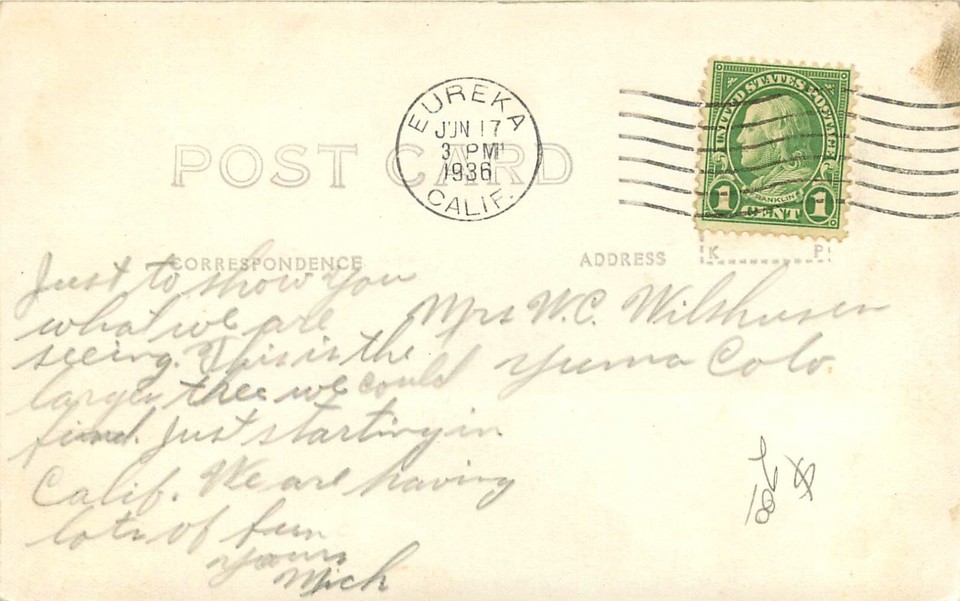 EUREKA
JUN 17
3 PM
1936
CALIF.
UNITED STATES POSTAGE
FRANKLIN
1 CENT 1
POST CARD
CORRESPONDENCE
ADDRESS
K P
Just to show you
what we are
seeing. This is the
larges thee we could
find. Just starting in
Calif. We are having
lots of fun
yours
Mich
Mrs W.C. Wilshusen
Yuma Colo.